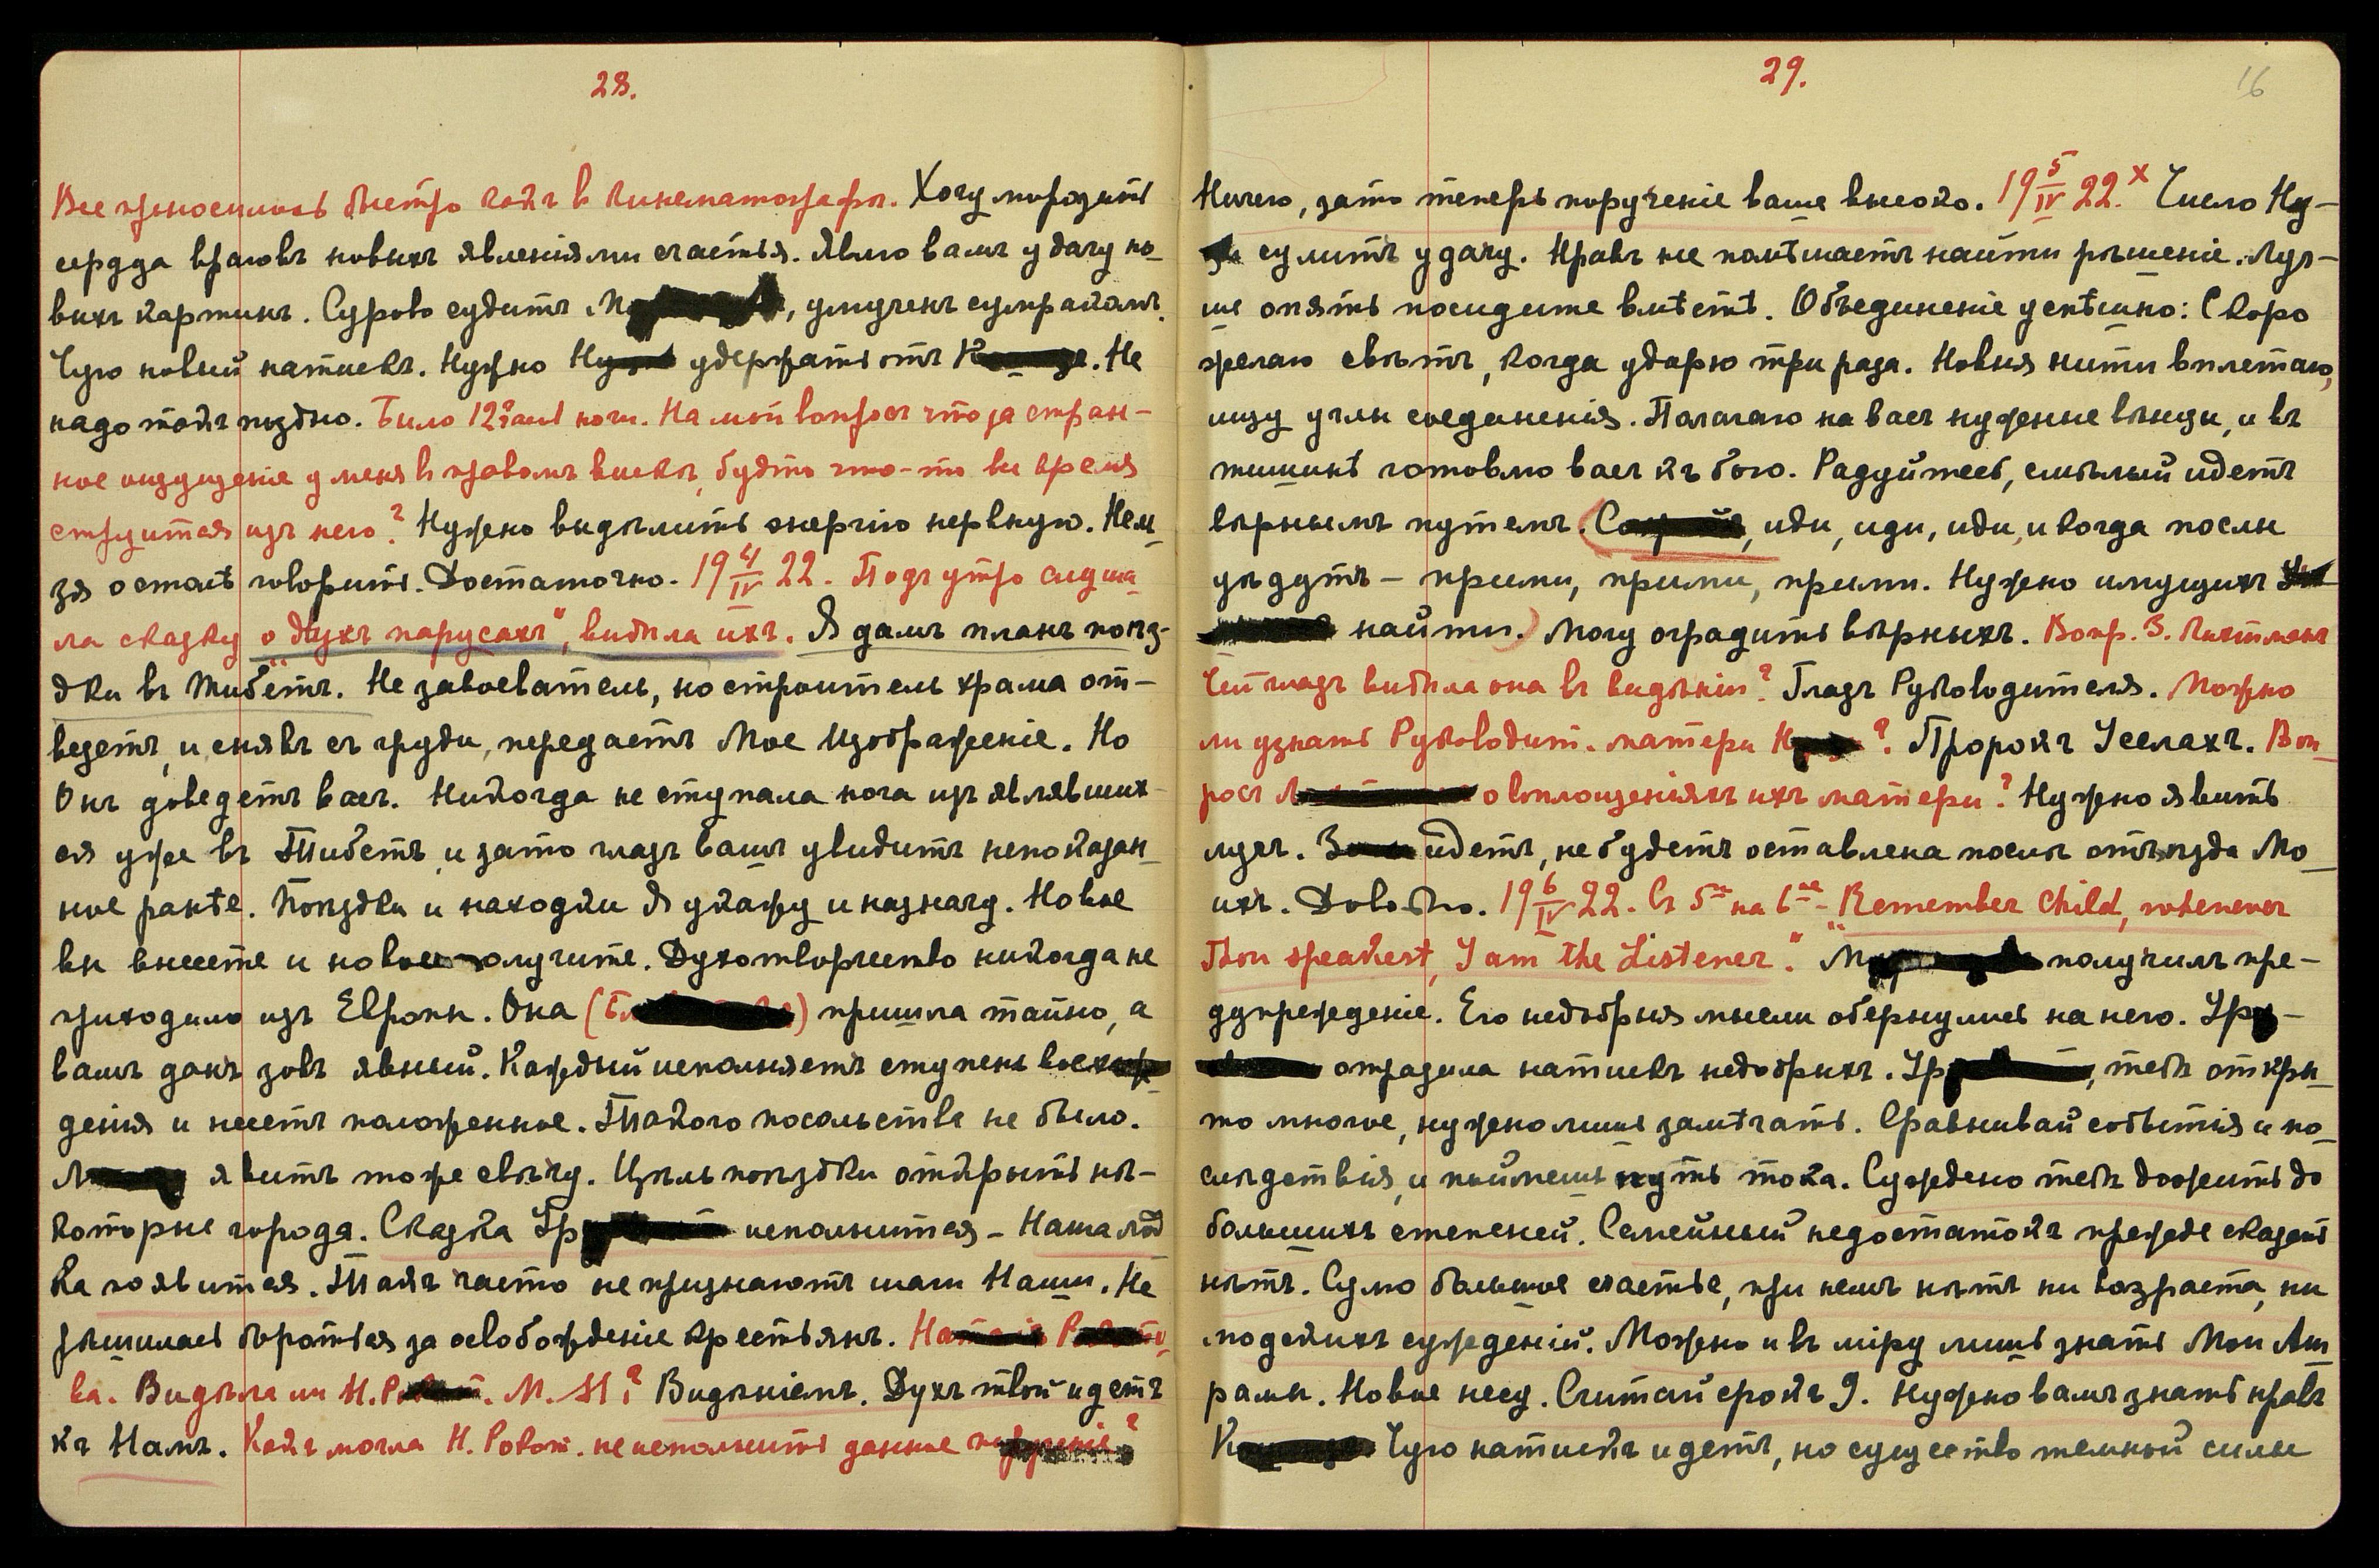 28.
Все проносилось быстро какъ в кинематографѣ. Хочу поразить
сердца враговъ новыхъ явленіями счастья. Явлю вамъ удачу но-
выхъ картинъ. Сурово судитъ , умученъ сумракомъ.
Чую новый натискъ. Нужно удержать отъ . Не
надо такъ поздно. Было 12 час ночи. На мой вопросъ что за стран-
ное ощущеніе у меня в правомъ вискѣ, будто что-то все время
струится изъ него? Нужно выдѣлить энергію нервную. Нель
зя остаьт говорить. Достаточно. 19 4/IV 22. Подъ утро слыша
ла сказку о „Духъ парусахъ", видѣла ихъ. Я дамъ планъ поѣз-
дки въ Тибетъ. Не завоеватель, но строитель храма от-
ведетъ, и снявъ съ груди, передастъ Мое Изображеніе. Но
Онъ доведетъ васъ. Никогда не ступала нога изъ являвших-
ся уже въ Тибетѣ, и зато глазъ вашъ увидитъ непоказан-
ное ранѣе. Поѣздки и находки Я укажу и назначу. Новое
вы внесете и новое получите. Духотворчество никогда не
приходило изъ Европы. Она ( ) пришла тайно, а
вамъ данъ зовъ явный. Каждый исполняетъ ступень восхож
денія и несетъ положенное. Такого посольства не было.
явитъ тоже свѣчу. Цѣль поѣздки открыть нѣ-
которые города. Сказка исполнится – Наша лод
ка появится. Такъ часто не признаютъ шаги Наши. Не
рѣшилась бороться за освобожденіе крестьянъ.
ва. Видѣла ли Н. М. Н.? Видѣніемъ. Духъ твой идетъ
къ Намъ. Какъ могла Н. Роком. не исполнить данное порученіе?
29.
16
Ничего, зато теперь порученіе ваше высоко. 19 5/IV 22.x Число Ну-
сулитъ удачу. Нравъ не помѣшаетъ найти рѣшеніе. Луч-
ше опять посидите вмѣстѣ. Объединеніе успѣшно: Скоро
желаю свѣтъ, когда ударю три раза. Новыя нити вплетаю,
ищу узлы соединенія. Полагаю на васъ нужные вѣнцы, и въ
тишинѣ готовлю васъ къ бою. Радуйтесь, смѣлый идетъ
вѣрнымъ путемъ. , иди, иди, иди, и когда послы
уѣдутъ – прими, прими, прими. Нужно имущихъ
найти. Могу оградить вѣрныхъ. Вопр. З. Лихтманъ
Чей глазъ видѣла она въ видѣніи? Глазъ Руководителя. Можно
ли узнать Руководит. матери ? Пророкъ Уселахъ. Воп-
росъ о воплощеніяхъ ихъ матери? Нужно явить
лучъ. идетъ, не будетъ оставлена послѣ отъѣзда Мо
ихъ. Довольно. 19 6/IV 22. Съ 5го на 6ое – „Remember Child, whenever
Thou speakest, I am the Listener." получилъ пре-
дупрежденіе. Его недобрыя мысли обернулись на него.
отразила натискъ недобрыхъ. , тебѣ откры
то многое, нужно лишь замѣчать. Сравнивай событія и по
слѣдствія, и поймешь путь тока. Суждено тебѣ дожить до
большихъ степеней. Семейный недостатокъ прежде сказант
нѣтъ. Сулю большое счастье, при немъ нѣтъ ни возраста, ни
людскихъ сужденій. Можно и въ міру лишь знать Мои Аш
рамы. Новое несу. Считай срокъ 9. Нужно вамъ знать нравъ
Чую натискъ идетъ, но существо темной силы